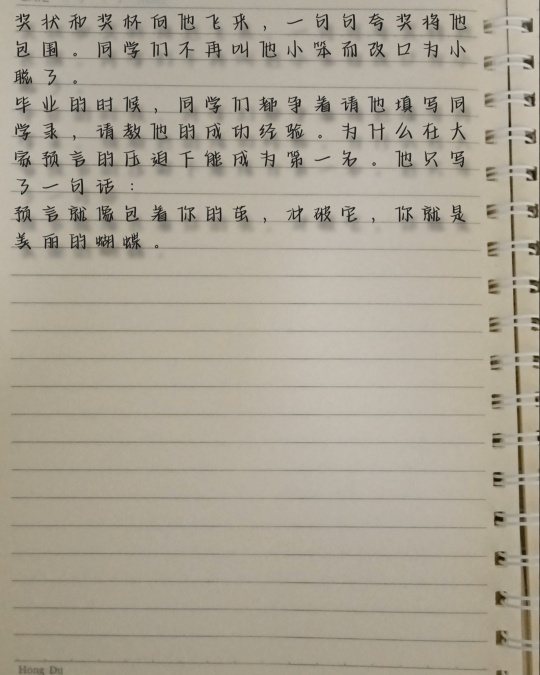 奖状和奖杯向他飞来，一句句夸奖将他
包围。同学们不再叫他小笨而改口为小
聪了。
毕业的时候，同学们都争着请他填写同
学录，请教他的成功经验。为什么在大
家预言的压迫下能成为第一名。他只写
了一句话：
预言就像包着你的茧，冲破它，你就是
美丽的蝴蝶。
Hong Du